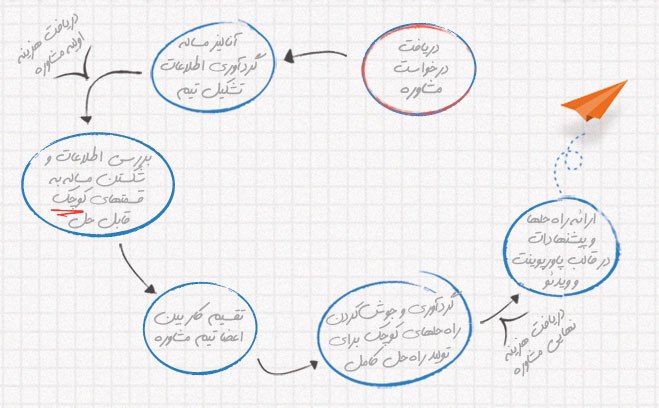 دریافت
درخواست
مشاوره
آنالیز مساله
گردآوری اطلاعات
تشکیل تیم
دریافت هزینه
اولیه مشاوره
بررسی اطلاعات و
شکستن مساله به
قسمتهای کوچک
قابل حل
تقسیم کار بین
اعضا تیم مشاوره
گردآوری و جوش کردن
راه حلهای کوچک برای
تولید راه حل کامل
دریافت هزینه
نهایی مشاوره
ارائه راه حلها
و پیشنهادات
در قالب پاورپوینت
و ویدئو